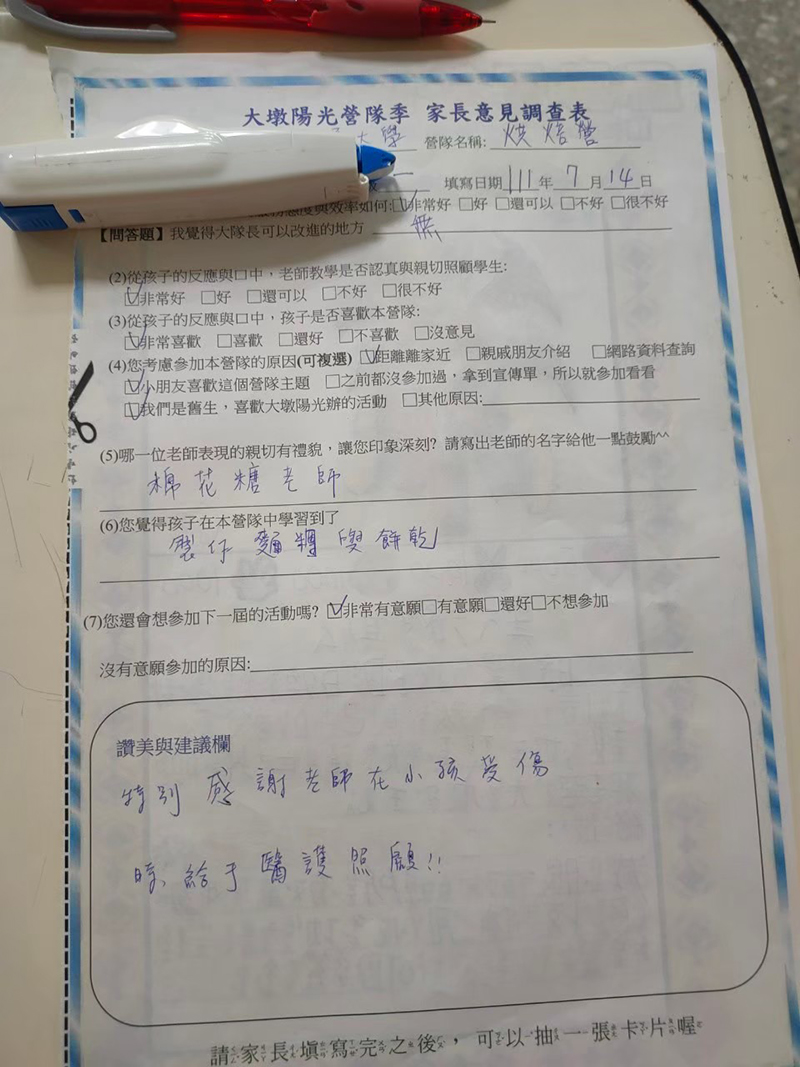 大墩陽光營隊季 家長意見調查表
大學 營隊名稱: 烘焙營
填寫日期111年7月14日
態度與效率如何:☑非常好 □好 □還可以 □不好 □很不好
【問答題】我覺得大隊長可以改進的地方 無
(2)從孩子的反應與口中，老師教學是否認真與親切照顧學生:
☑非常好 □好 □還可以 □不好 □很不好
(3)從孩子的反應與口中，孩子是否喜歡本營隊:
☑非常喜歡 □喜歡 □還好 □不喜歡 □沒意見
(4)您考慮參加本營隊的原因(可複選) ☑距離離家近 □親戚朋友介紹 □網路資料查詢
☑小朋友喜歡這個營隊主題 □之前都沒參加過，拿到宣傳單，所以就參加看看
☑我們是舊生，喜歡大墩陽光辦的活動 □其他原因:
(5)哪一位老師表現的親切有禮貌，讓您印象深刻? 請寫出老師的名字給他一點鼓勵^^
棉花糖老師
(6)您覺得孩子在本營隊中學習到了
製作麵糰與餅乾
(7)您還會想參加下一屆的活動嗎? ☑非常有意願□有意願□還好□不想參加
沒有意願參加的原因:
讚美與建議欄
特別感謝老師在小孩受傷
時、給于醫護照顧!!
請家長填寫完之後，可以抽一張卡片喔